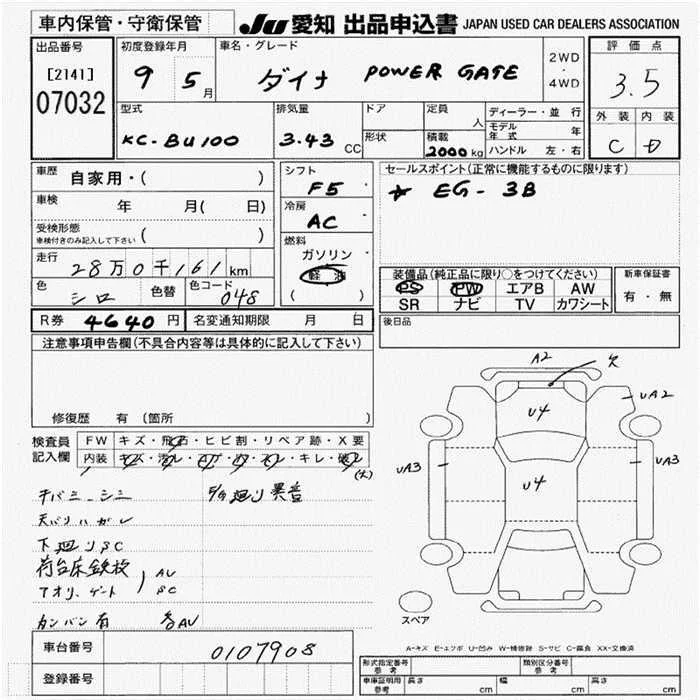 車内保管・守衛保管
JU 愛知 出品申込書 JAPAN USED CAR DEALERS ASSOCIATION
出品番号
[2141]
07032
初度登録年月
9 5月
車名・グレード
ダイナ POWER GATE
2WD
・
4WD
評価点
3.5
外装 内装
C D
型式
KC-BU100
排気量
3.43 CC
ドア
形状
定員
人
積載
2000 kg
ディーラー・並行
モデル年式 年
ハンドル 左・右
車歴 自家用・( )
車検 年 月( 日)
受検形態
車検付きのみ記入して下さい ( )
走行 28万0千161km
色 シロ 色替 色コード 048
シフト
F5
冷房
AC
燃料
ガソリン
軽油
( )
セールスポイント(正常に機能するものに限ります)
☆ EG- 3B
装備品(純正品に限り○をつけてください)
PS PW エアB AW
SR ナビ TV カワシート
新車保証書
有・無
R券 4640円 名変通知期限 月 日
後日品
注意事項申告欄(不具合内容等は具体的に記入して下さい)
修復歴 有 (箇所 )
検査員記入欄
FW キズ・飛石・ヒビ割・リペア跡・X要
内装
(大)
天バリハガレ
下廻りSC
荷台床鉄板
アオリ、ゲート
AU
SC
カンバン有 各AU
異音
A2
U4
UA2
UA3
U4
UA3
スペア
A-キズ E-エクボ U-凹み W-補修跡 S-サビ C-腐食 XX-交換済
車台番号 0107908
登録番号
形式指定番号
参考
類別区分番号
参考
車庫証明用
参考
長さ cm
幅 cm
高さ cm